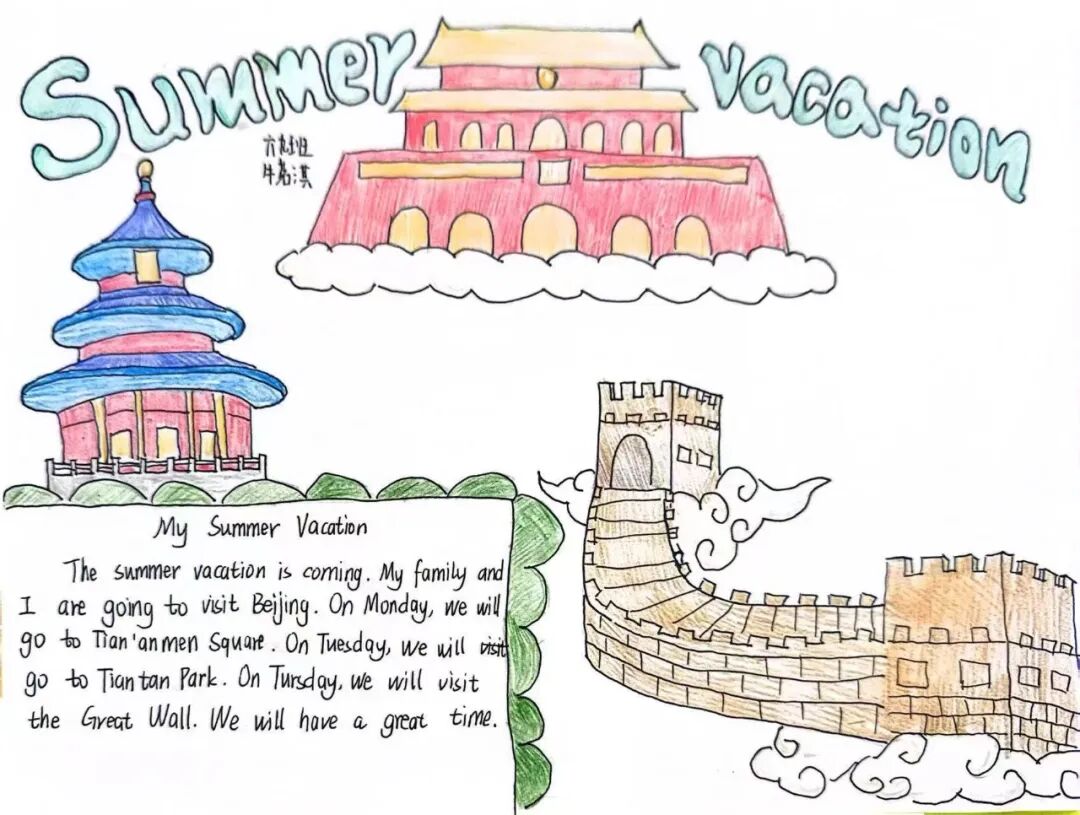 Summer vacation
My Summer Vacation
The summer vacation is coming. My family and
I are going to visit Beijing. On Monday, we will
go to Tian'anmen Square. On Tuesday, we will visit
go to Tiantan Park. On Tursday, we will visit
the Great Wall. We will have a great time.